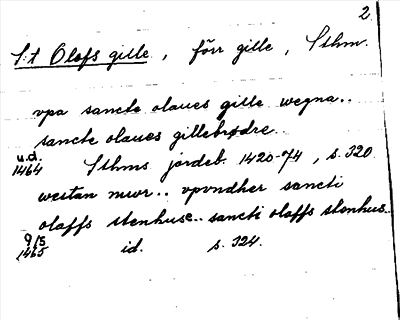 2.
S:t Olofs gille, förr gille, Sthm.
vpa sancte olaues gille wegna..
sancte olaues gillebrødre..
u.d. 1464 Sthms jordeb. 1420-74, s. 320
westan mwr.. vpvndher sancti
olaffs stenhuse.. sancti olaffs stenhus..
9/5 1465 id. s. 324.